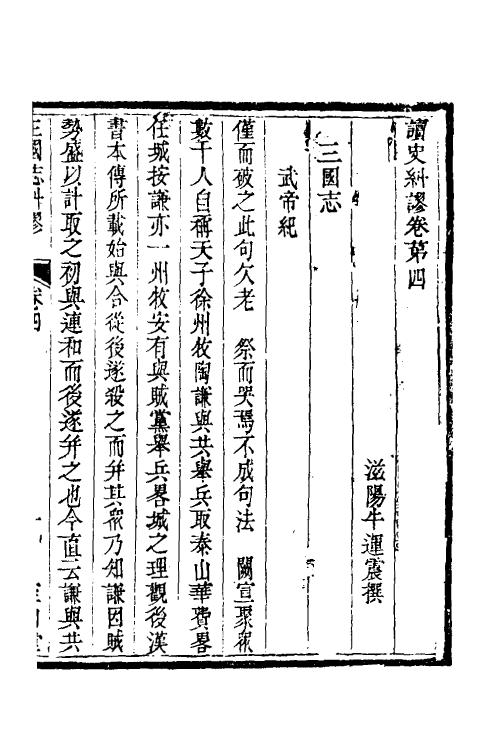 讀史糾謬卷第四
滋陽牛運震撰
三國志
武帝紀
僅而破之此句欠老　祭而哭焉不成句法　闕宣聚衆
數千人自稱天子徐州牧陶謙與共舉兵取泰山華費畧
任城按謙亦一州牧安有與賊黨舉兵畧城之理觀後漢
書本傳所載始與合從後遂殺之而并其衆乃知謙因賊
勢盛以計取之初與連和而後遂并之也今直云謙與共
三國志糾謬　卷四